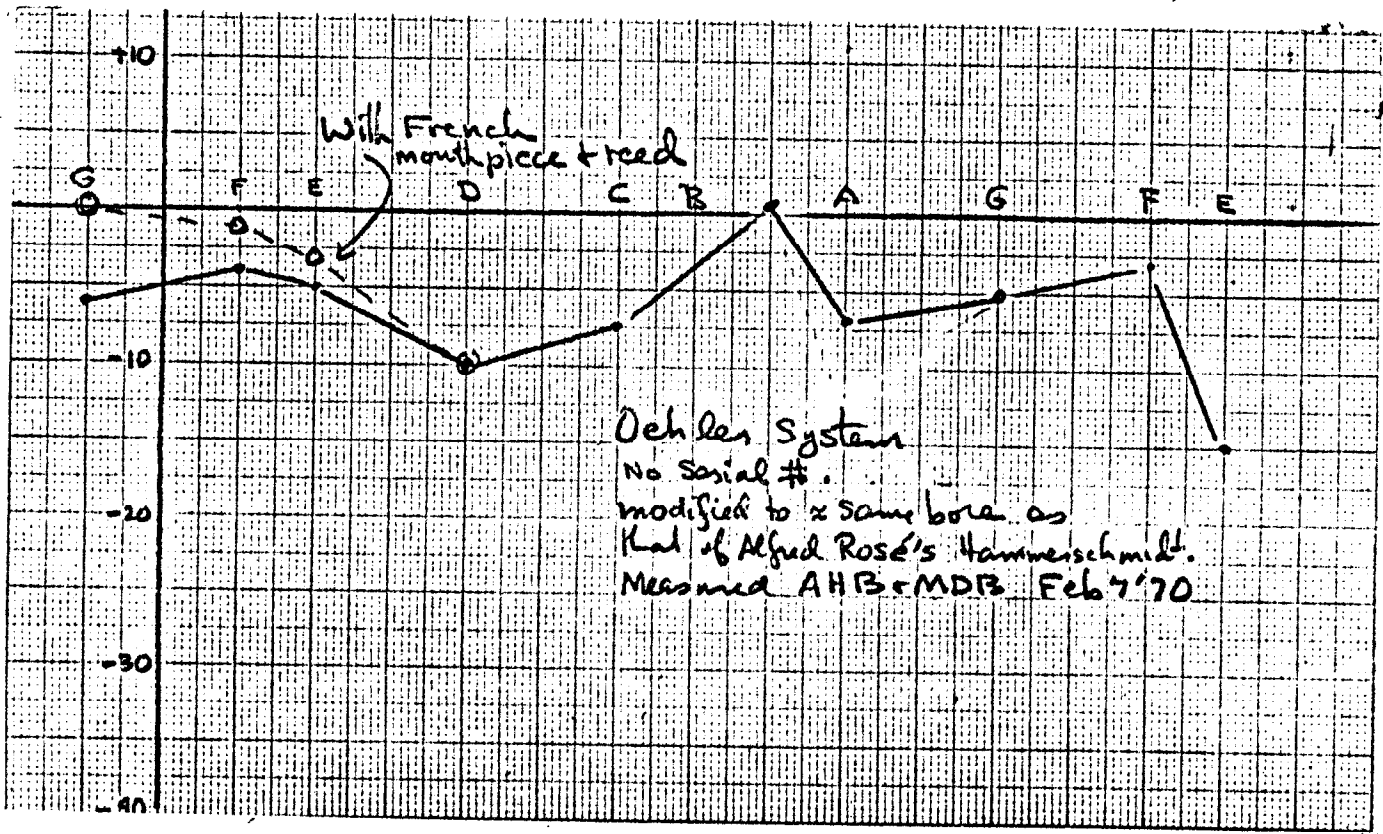 +10
With French
mouthpiece + reed
G F E D C B A G F E
-10
Oehler System
No Serial #.
modified to ≈ same bore as
that of Alfred Rosé's Hammerschmidt.
-20
Measured AHB + MDB Feb 7 '70
-30
-40